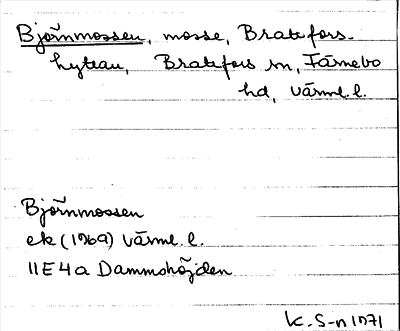 Björnmossen, mosse, Bratefors-
hyttan, Bratefors sn, Färnebo
hd, Värml. l.
Björnmossen
ek (1969) Värml. l.
11E4a Dammshöjden
K. S-n 1971